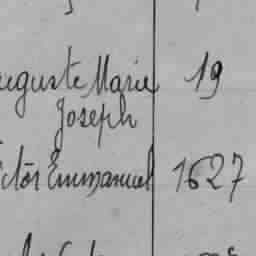 uguste Marie 19
Joseph
ictor Emmanuel 1627